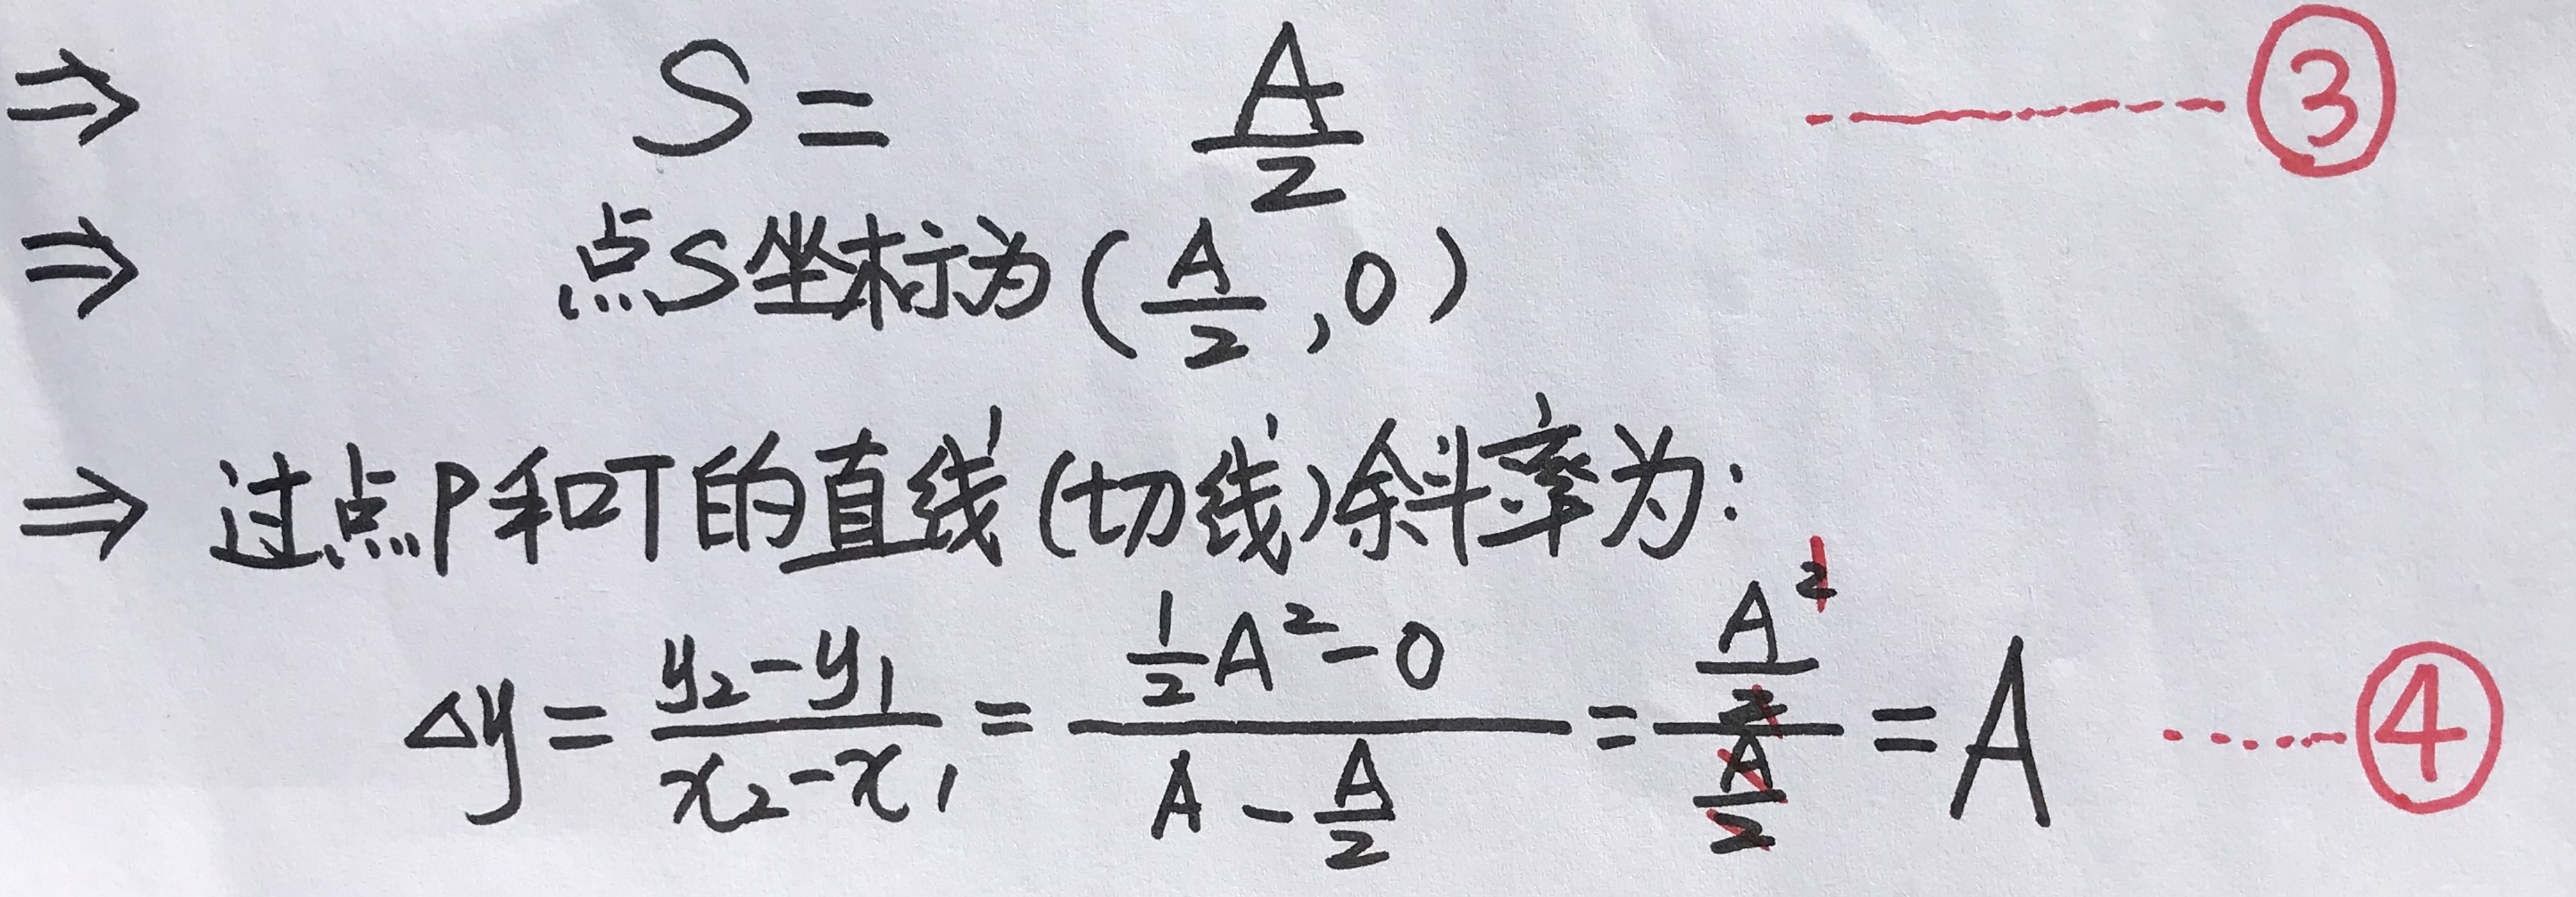 ⇒ S = A/2 ------- ③
⇒ 点S坐标为(A/2, 0)
⇒ 过点P和T的直线(切线)斜率为:
△y = (y₂-y₁)/(x₂-x₁) = (½A²-0)/(A-A/2) = (A²/2)/(A/2) = A ...... ④